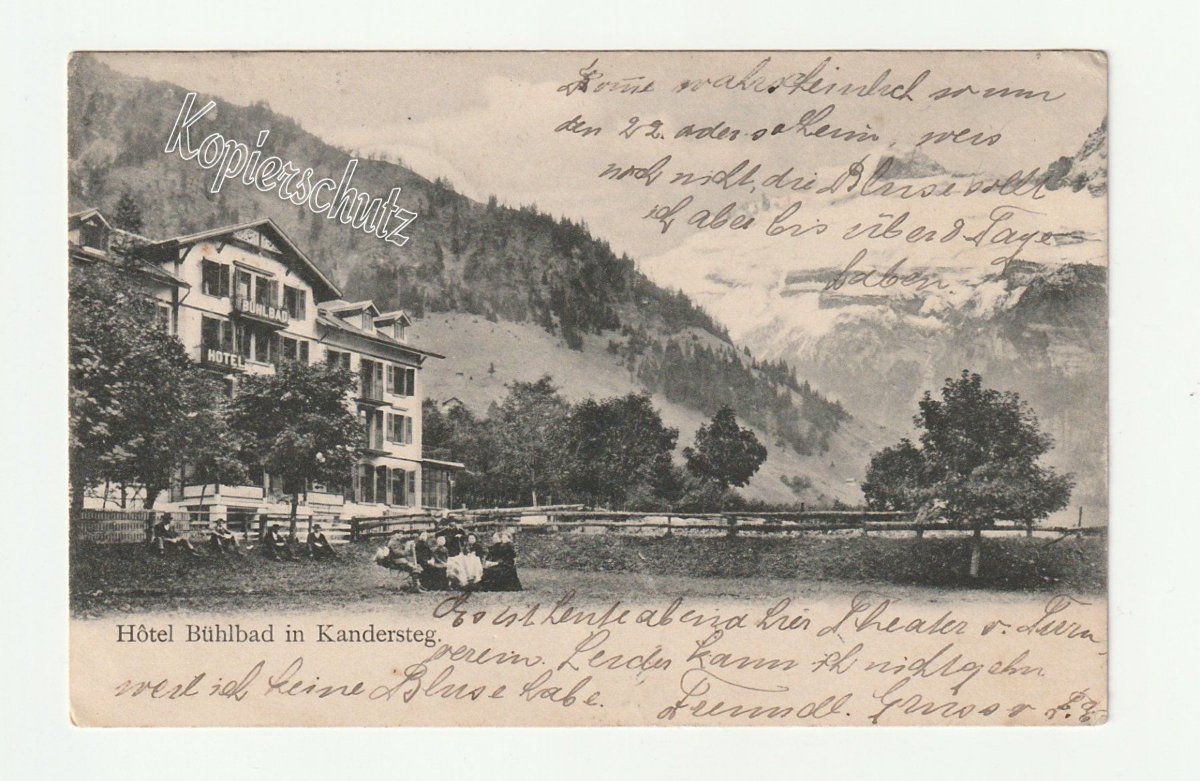 Kome wahrscheinlich so um
den 22. oder so heim, weis
noch nicht, die Bluse sollt
ich aber bis über 8 Tage
haben.
Kopierschutz
BÜHLBAD
HOTEL
Hôtel Bühlbad in Kandersteg.
Es ist heute abend hier Theater v. Turn
verein. Leider kann ich nicht gehn
weil ich keine Bluse habe.
Freundl. Gruss v